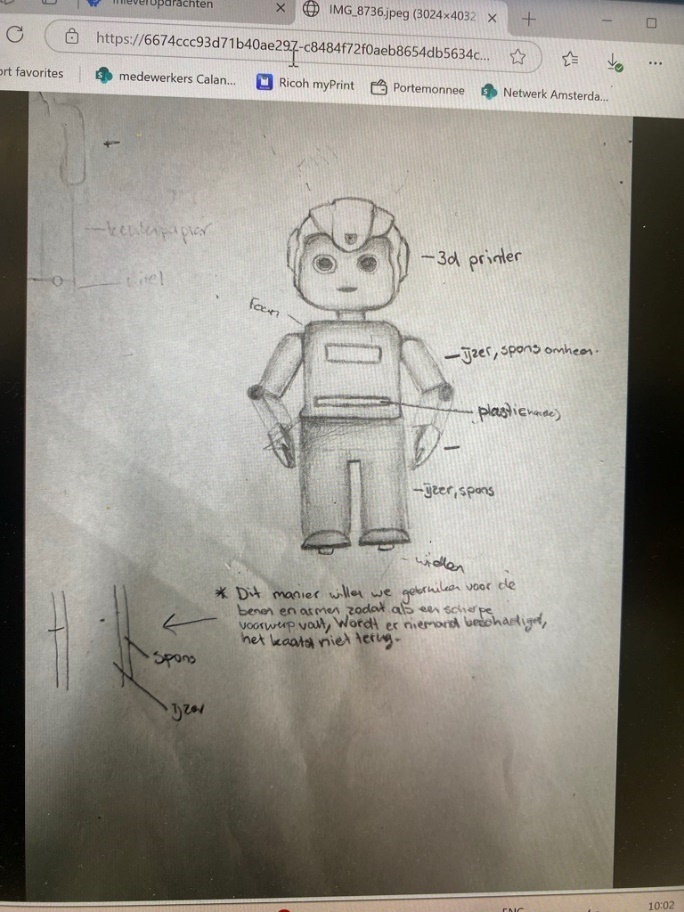 Inleveropdrachten
IMG_8736.jpeg (3024×4032
https://6674ccc93d71b40ae297-c8484f72f0aeb8654db5634c...
ort favorites
medewerkers Calan...
Ricoh myPrint
Portemonnee
Netwerk Amsterda...
3d printer
Foam
ijzer, spons omheen.
plastic
ijzer, spons
wielen
* Dit manier willen we gebruiken voor de
benen en armen zodat als een scherpe
voorwerp valt, wordt er niemand beschadigd,
het kaatst niet terug.
spons
Ijzer
10:02